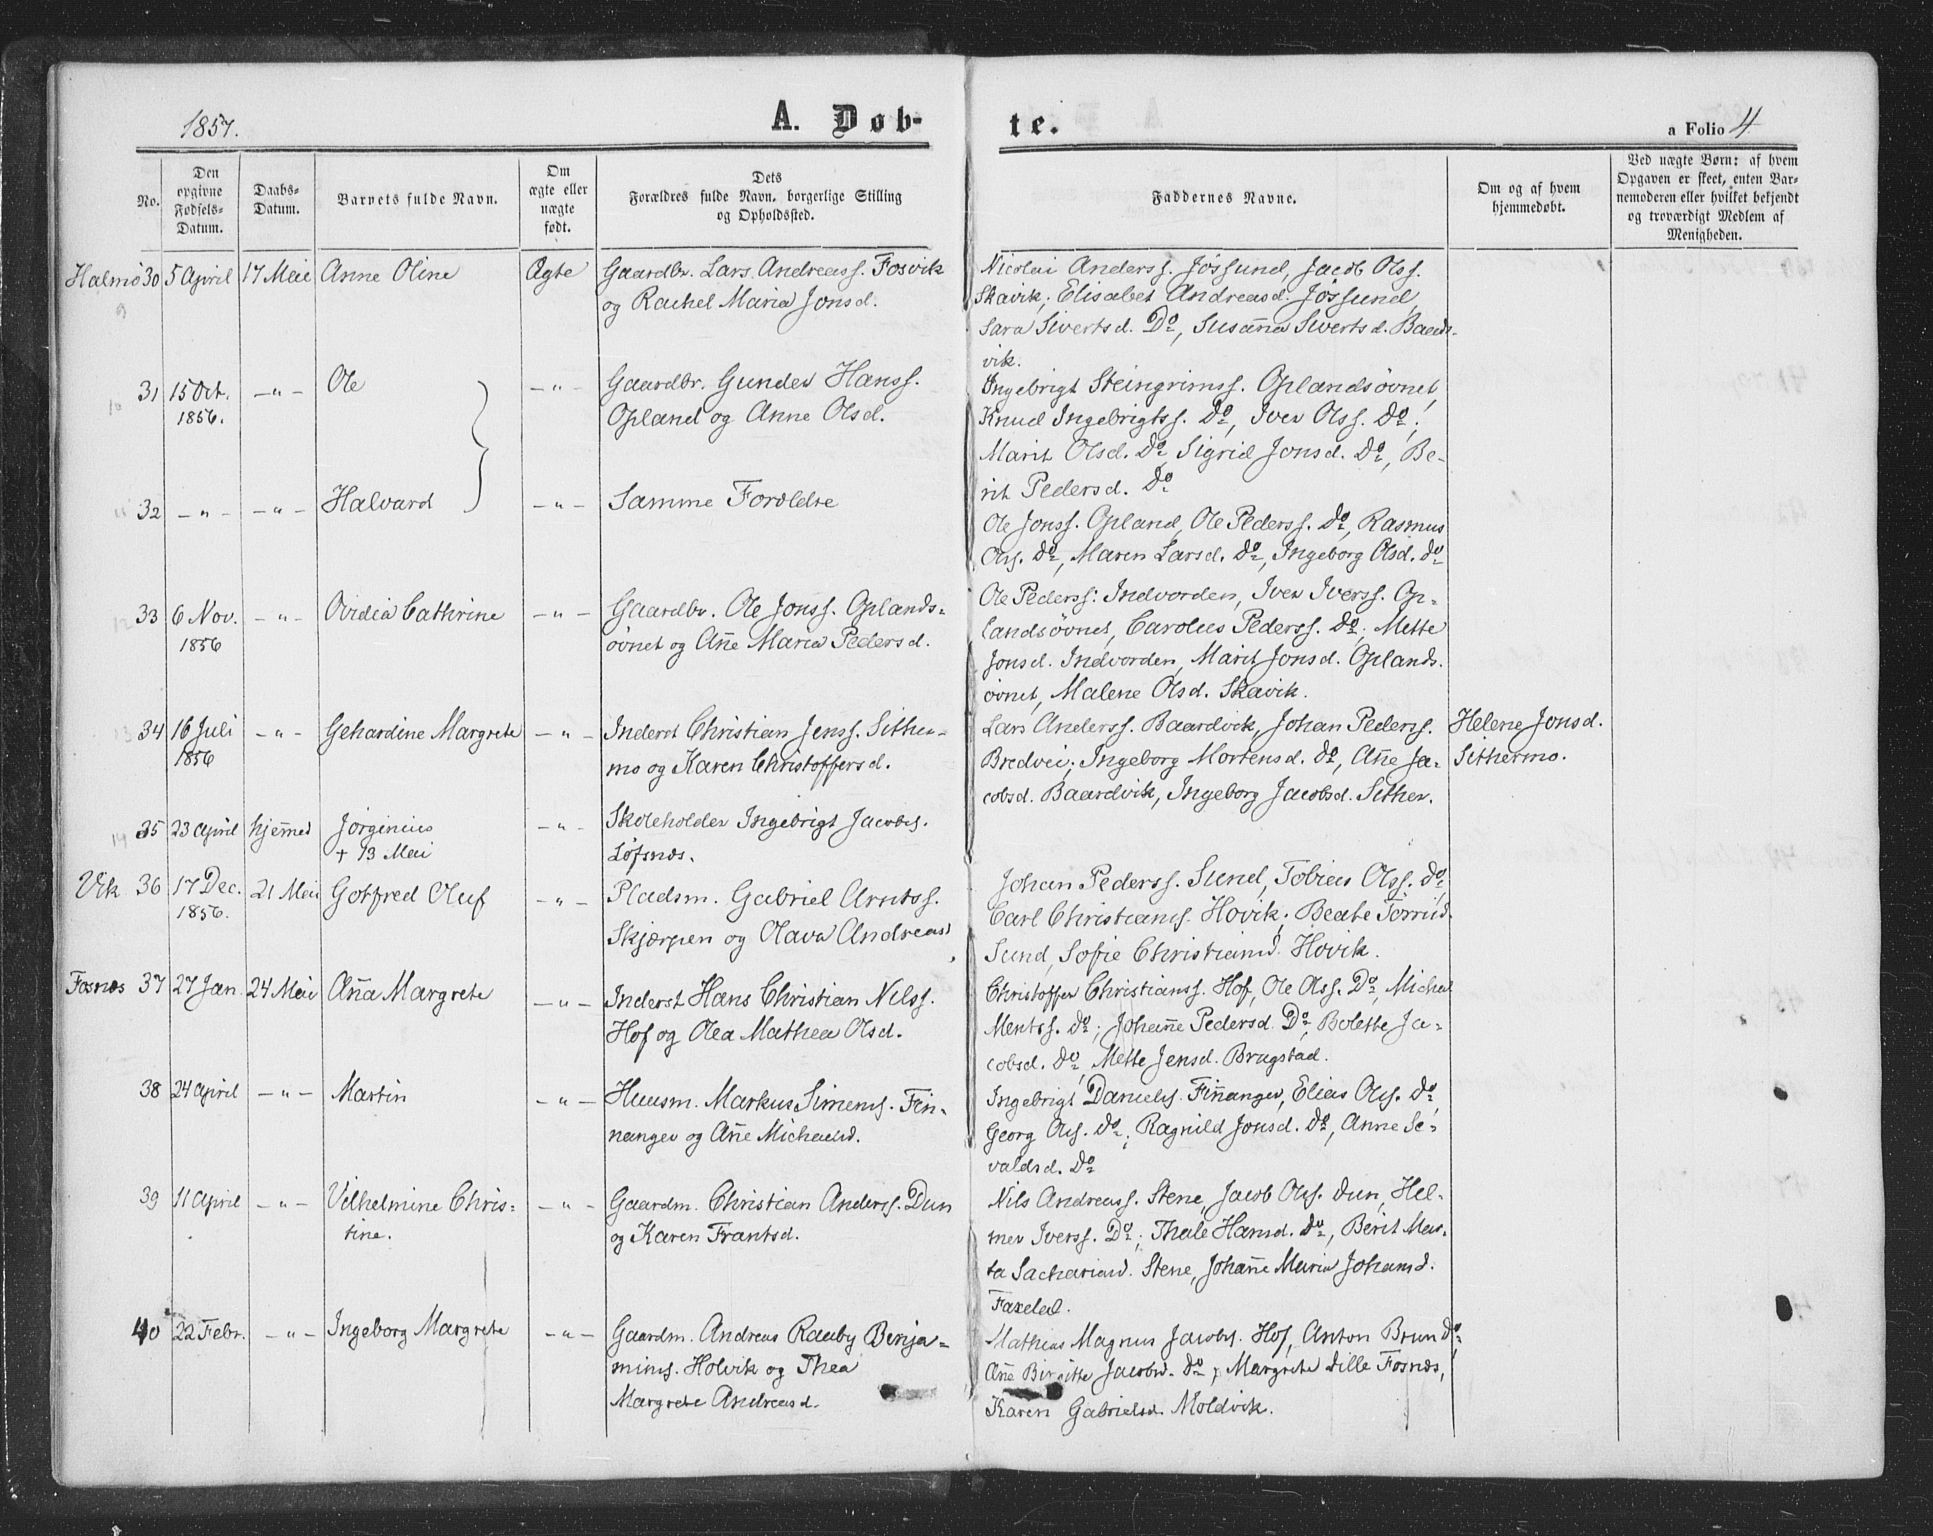 1857.
A. Døb-
te.
a Folio 4
No.
Den
opgivne
Fødsels-
Datum.
Daabs-
Datum.
Barnets fulde Navn.
Om
ægte eller
uægte
født.
Dets
Forældres fulde Navn, borgerlige Stilling
og Opholdssted.
Faddernes Navne.
Om og af hvem
hjemmedøbt.
Ved uægte Børn: af hvem
Opgaven er skeet, enten Bar-
nemoderen eller hvilket bekjendt
og troværdigt Medlem af
Menigheden.
Halmø 30 5 April 17 Mai Anne Oline Ægte Gaardbr. Lars Andreass. Fosvik
og Rachel Maria Jonsd.
Nicolai Anderss. Jøssund, Jacob Olss.
Skavik; Elisabet Andreasd. Jøssund,
Sara Sivertsd. Do, Susan̄a Sivertsd. Baards-
vik.
31 15 Oct. —"— Ole —"— Gaardbr. Gunder Hanss.
1856. Opland og Anne Olsd.
Ingebrigt Steingrimss. Oplandsøvnet,
Knud Ingebrigtss. Do, Iver Olss. Do;
Marit Olsd. Do, Sigrid Jonsd. Do, Be-
rit Pedersd. Do
32 —"— —"— Halvard —"— Samme Forældre
Ole Jonss. Opland, Ole Pederss. Do, Rasmus
Ols. Do, Maren Larsd. Do, Ingeborg Olsd. do
33 6 Nov. —"— Ovidia Cathrine —"— Gaardbr. Ole Jonss. Oplands-
1856 øvnet og An̄e Maria Pedersd.
Ole Pederss. Indvorden, Iver Iverss. Op-
landsøvnet, Carolus Pederss. Do; Mette
Jonsd. Indvorden, Marit Jonsd. Oplands-
øvnet, Malene Olsd. Skavik.
34 16 Juli —"— Gehardine Margrete —"— Inderst Christian Jenss. Sither-
1856 mo og Karen Christoffersd.
Lars Anderss. Baardvik, Johan Pederss.
Bredvei; Ingeborg Mortensd. do, An̄e Ja-
cobsd. Baardvik, Ingeborg Jacobsd. Sither.
Helene Jonsd.
Sithermo.
35 23 April hjem̄ed Jørginius —"— Skoleholder Ingebrigt Jacobs.
+ 13 Mai Løfsnæs.
Vik 36 17 Dec. 21 Mai Gotfred Oluf —"— Pladsm. Gabriel Arntss.
1856. Skjærpen og Olava Andreasd
Johan Pederss. Sund, Tobias Olss. do,
Carl Christianss. Hovik; Beate
Sund, Sofie Christiansd. Hovik.
Fosnæs 37 27 Jan. 24 Mai An̄a Margrete —"— Inderst Hans Christian Nilss.
Hof og Olea Mathea Olsd.
Christoffer Christianss. Hof, Ole Olss. Do, Michal
Mentss. do; Johan̄e Pedersd. Do, Bolette Ja-
cobsd. do, Mette Jensd. Bragstad.
38 24 April —"— Martin —"— Huusm. Markus Simens. Fin-
nanger og An̄e Michaelsd.
Ingebrigt Daniels. Fin̄anger, Elias Ols. do,
Georg Ols. do; Ragnild Jonsd. do, Anne Se-
valdsd. Do
39 11 April —"— Vilhelmine Chris- —"— Gaardm. Christian Anderss. Dun
tine. og Karen Frantsd.
Nils Andreass. Stene, Jacob Ols. Dun, Hel-
mer Iverss. Do; Thale Hansd. do, Berit Mar-
ta Sachariasd. Stene, Johan̄e Maria Johansd.
Faxeled.
40 22 Febr. —"— Ingeborg Margrete —"— Gaardm. Andreas Raaby Benja-
mins. Holvik og Thea
Margrete Andreasd.
Mathias Magnus Jacobs. Hof, Anton Brun do,
An̄e Birgitte Jacobsd. do, Margrete Dille Fosnæs,
Karen Gabrielsd. Moldvik.